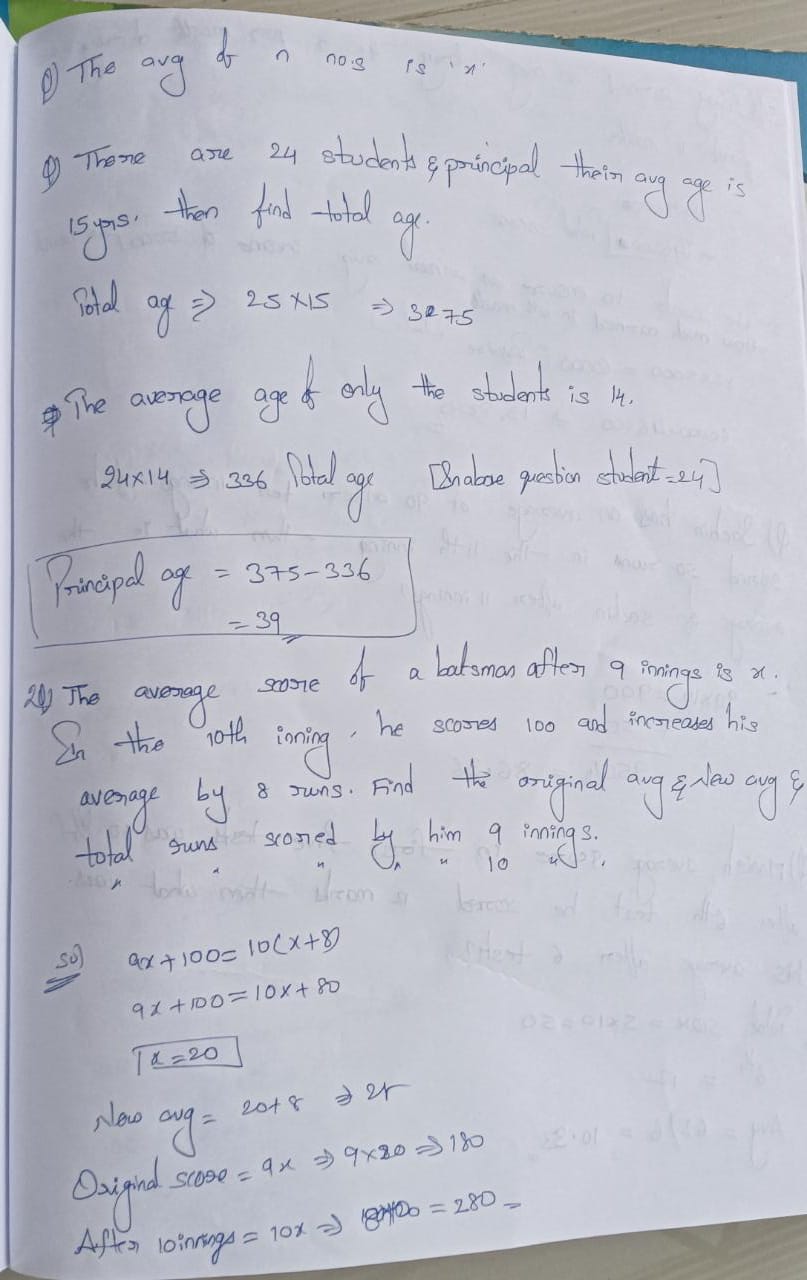 Q) The avg of n nos is 'x'
Q) There are 24 students & principal their avg age is
15 yrs. then find total age.
Total ag ⇒ 25 x15 ⇒ 3275
The average age of only the students is 14.
24x14 ⇒ 336 Total age [In above question student = 24]
Principal age = 375-336
= 39
2Q) The average score of a batsman after 9 innings is x.
In the 10th inning, he scores 100 and increases his
average by 8 runs. Find the original avg & New avg &
total runs scored by him 9 innings.
" " " " " 10 ".
Sol) 9x+100= 10(x+8)
9x+100=10x+80
x=20
New avg = 20+8 ⇒ 28
Original score = 9x ⇒ 9x20 ⇒ 180
After 10innings = 10x ⇒ = 280